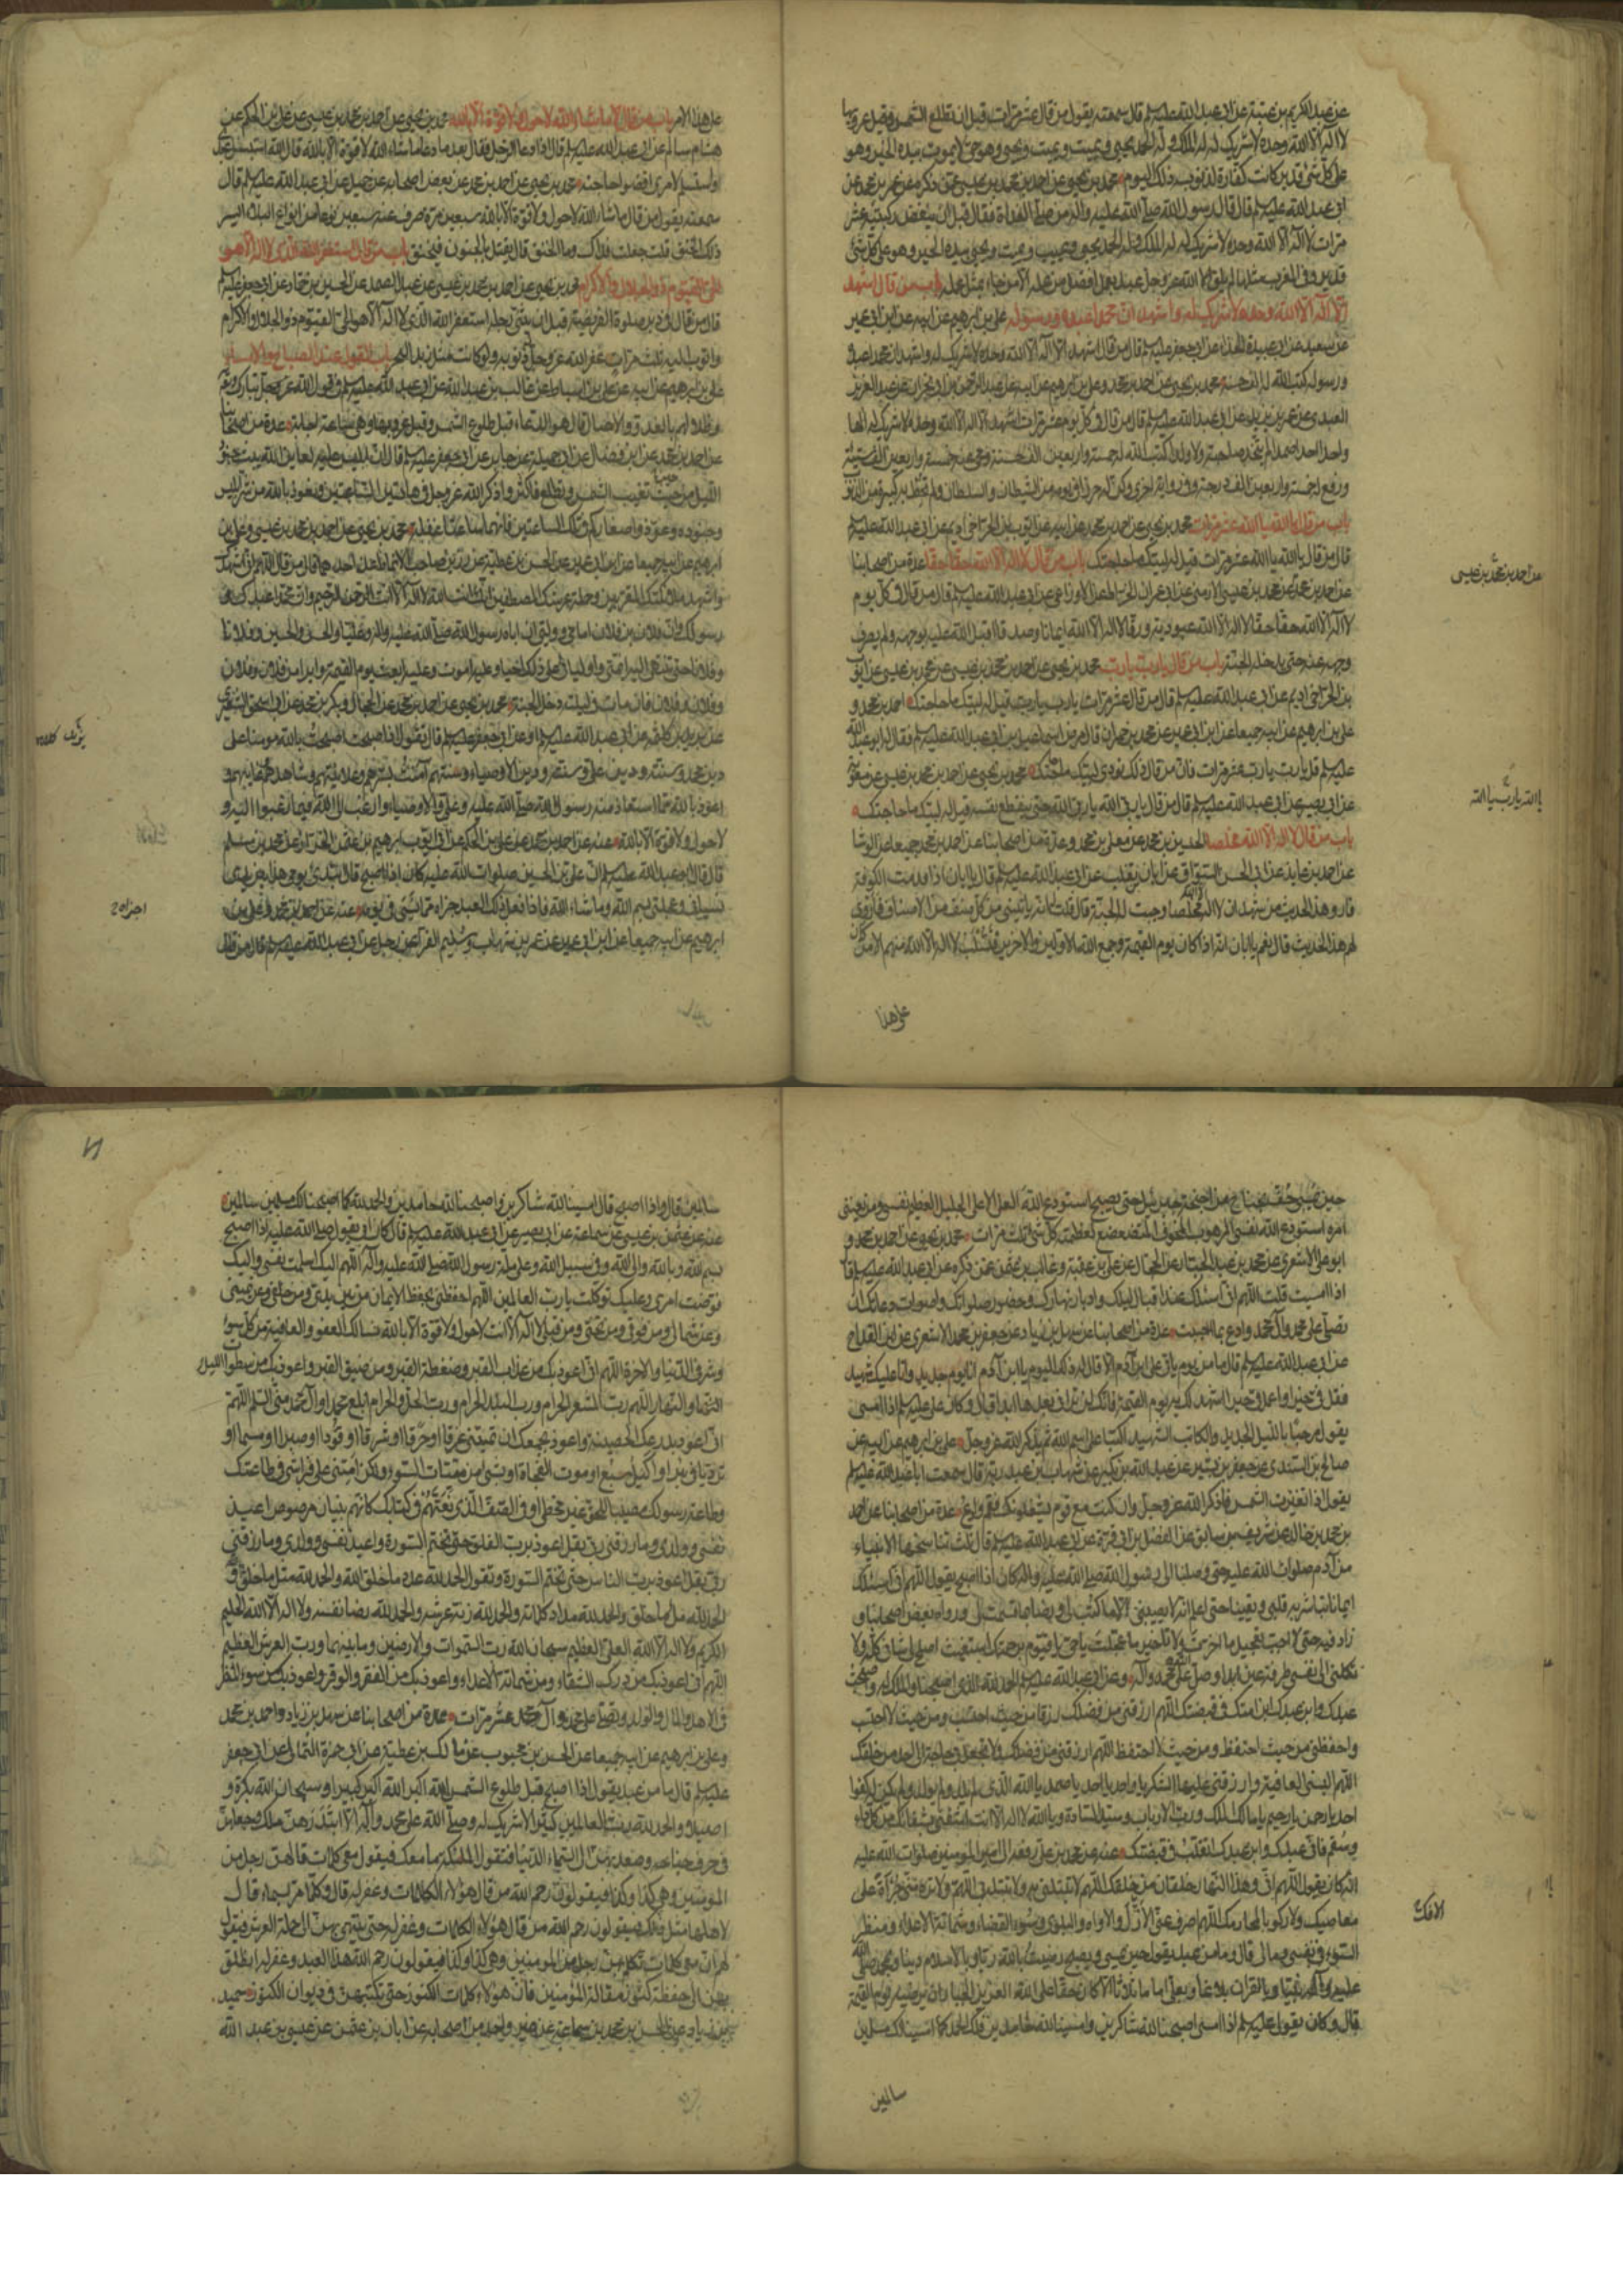 عن عبد الكريم بن عتبة عن ابى عبد الله عليه السلم قال سمعته يقول من قال عشر مرات قبل ان تطلع الشمس وقبل غروبها
لا اله الا الله وحده لا شريك له له الملك وله الحمد يحيى ويميت ويميت ويحيى وهو حى لا يموت بيده الخير وهو
على كل شئ قدير كانت كفارة لذنوبه ذلك اليوم محمد بن يحيى عن احمد بن محمد بن عيسى عمن ذكره عن عمر بن محمد عن
ابى عبد الله عليه السلم قال قال رسول الله صلى الله عليه واله من صلى الغداة فقال قبل ان ينفض ركبتيه عشر
مرات لا اله الا الله وحده لا شريك له له الملك وله الحمد يحيى ويميت ويميت ويحيى بيده الخير وهو على كل شئ
قدير وفى المغرب مثلها لم يلق الله عز وجل عبد بعمل افضل من عمله الا من جاء بمثل عمله باب من قال اشهد
ان لا اله الا الله وحده لا شريك له واشهد ان محمدا عبده ورسوله على بن ابرهيم عن ابيه عن ابن ابى عمير
عن سعيد عن ابى عبيدة الحذاء عن ابى جعفر عليه السلم قال من قال اشهد ان لا اله الا الله وحده لا شريك له واشهد ان محمدا عبده
ورسوله كتب الله له الف حسنة محمد بن يحيى عن احمد بن محمد وعلى بن ابرهيم عن ابيه عن عبد الرحمن بن ابى نجران عن عبد العزيز
العبدى عن عمر بن يزيد عن ابى عبد الله عليه السلم قال من قال فى كل يوم عشر مرات اشهد ان لا اله الا الله وحده لا شريك له الها
واحدا احدا صمدا لم يتخذ صاحبة ولا ولدا كتب الله له خمسة واربعين الف حسنة ومحى عنه خمسة واربعين الف سيئة
ورفع له خمسة واربعين الف درجة وفى رواية اخرى وكن له حرزا فى يومه من الشيطان والسلطان ولم تحط به كبيرة من الذنوب
باب من قال يا الله يا الله عشر مرات محمد بن يحيى عن احمد بن محمد عن ابيه عن ايوب بن الحر اخى اديم عن ابى عبد الله عليه السلم
قال من قال يا الله يا الله عشر مرات قيل له لبيك ما حاجتك باب من قال لا اله الا الله حقا حقا عدة من اصحابنا
عن احمد بن محمد عن محمد بن عيسى الارمنى عن ابى عمران الخراط عن الاوزاعى عن ابى عبد الله عليه السلم قال من قال فى كل يوم
لا اله الا الله حقا حقا لا اله الا الله عبودية ورقا لا اله الا الله ايمانا وصدقا اقبل الله عليه بوجهه ولم يصرف
وجهه عنه حتى يدخله الجنة باب من قال يا رب يا رب محمد بن يحيى عن احمد بن محمد بن عيسى عن محمد بن عيسى عن ايوب
بن الحر اخى اديم عن ابى عبد الله عليه السلم قال من قال عشر مرات يا رب يا رب قيل له لبيك ما حاجتك احمد بن محمد و
على بن ابرهيم عن ابيه جميعا عن ابن ابى عمير عن محمد بن حمران قال مرض اسمعيل بن ابى عبد الله عليه السلم فقال له ابو عبد الله
عليه السلم قل يا رب يا رب عشر مرات فان من قال ذلك نودى لبيك ما حاجتك محمد بن يحيى عن احمد بن محمد بن عيسى عن معوية
عن ابى بصير عن ابى عبد الله عليه السلم قال من قال يا رب يا الله يا رب يا الله حتى ينقطع نفسه قيل له لبيك ما حاجتك
باب من قال لا اله الا الله مخلصا الحسين بن محمد عن معلى بن محمد وعدة من اصحابنا عن احمد بن محمد جميعا عن الوشا
عن احمد بن عايذ عن ابى الحسن السواق عن ابان بن تغلب عن ابى عبد الله عليه السلم قال يا ابان اذا قدمت الكوفة
فارو هذا الحديث من شهد ان لا اله الا الله مخلصا وجبت له الجنة قال قلت له انه ياتينى من كل صنف من الاصناف فاروى
لهم هذا الحديث قال نعم يا ابان انه اذا كان يوم القيمة وجمع الله الاولين والاخرين فتسلب لا اله الا الله منهم الا من كان
على هذا
عن احمد بن محمد بن عيسى
يا الله يا رب يا الله
على هذا الامر باب من قال ما شاء الله لا حول ولا قوة الا بالله محمد بن يحيى عن احمد بن محمد بن عيسى عن على بن الحكم عن
هشام بن سالم عن ابى عبد الله عليه السلم قال اذا دعا الرجل فقال بعد ما دعا ما شاء الله لا قوة الا بالله قال الله استبسل عبدى
واستسلم لامرى اقضوا حاجته محمد بن يحيى عن احمد بن محمد عن بعض اصحابه عن جميل عن ابى عبد الله عليه السلم قال
سمعته يقول من قال ما شاء الله لا حول ولا قوة الا بالله سبعين مرة صرف عنه سبعين نوعا من انواع البلاء ايسر
ذلك الخنق قلت جعلت فداك وما الخنق قال لا يعتل بالجنون فيخنق باب من قال استغفر الله الذى لا اله الا هو
الحى القيوم ذو الجلال والاكرام محمد بن يحيى عن احمد بن محمد بن عيسى عن عبد الصمد عن الحسين بن حماد عن ابى جعفر عليه السلم
قال من قال فى دبر صلوة الفريضة قبل ان يثنى رجله استغفر الله الذى لا اله الا هو الحى القيوم ذو الجلال والاكرام
واتوب اليه ثلث مرات غفر الله عز وجل ذنوبه ولو كانت مثل زبد البحر باب القول عند الصباح والامساء
على بن ابرهيم عن ابيه عن على بن اسباط عن غالب بن عبد الله عن ابى عبد الله عليه السلم فى قول الله عز وجل تبارك وتعالى
وظلالهم بالغدو والاصال قال هو الدعاء قبل طلوع الشمس وقبل غروبها وهى ساعة اجابة عدة من اصحابنا
عن احمد بن محمد عن ابن فضال عن ابى جميلة عن جابر عن ابى جعفر عليه السلم قال ان ابليس عليه لعاين الله يبث جنود
الليل من حيث تغيب الشمس وتطلع فاكثروا ذكر الله عز وجل فى هاتين الساعتين وتعوذوا بالله من شر ابليس
وجنوده وعوذوا صغاركم فى تلك الساعتين فانهما ساعتا غفلة محمد بن يحيى عن احمد بن محمد بن عيسى وعلى بن
ابرهيم عن ابيه جميعا عن ابن ابى عمير عن الحسن بن عطية عن رزين صاحب الانماط عن احدهما قال من قال اللهم انى اشهدك
واشهد ملائكتك المقربين وحملة عرشك المصطفين انك انت الله لا اله الا انت الرحمن الرحيم وان محمدا عبدك و
رسولك وان فلان بن فلان امامى ووليى وان اباه رسول الله صلى الله عليه واله وعليا والحسن والحسين وفلانا
وفلانا حتى ينتهى اليه ائمتى واوليائى على ذلك احيا وعليه اموت وعليه ابعث يوم القيمة وابرا من فلان وفلان
وفلان وفلان فان مات فى ليلته دخل الجنة محمد بن يحيى عن احمد بن محمد عن الحجال وبكر بن محمد عن ابى اسحق الشعيرى
عن يزيد بن كلثمة عن ابى عبد الله عليه السلم او عن ابى جعفر عليه السلم قال تقول اذا اصبحت اصبحت بالله مومنا على
دين محمد وسنته ودين على وسنته ودين الاوصياء وسنتهم آمنت بسرهم وعلانيتهم وشاهدهم وغايبهم و
اعوذ بالله مما استعاذ منه رسول الله صلى الله عليه وعلى والاوصياء وارغب الى الله فيما رغبوا اليه و
لا حول ولا قوة الا بالله عنه عن احمد بن محمد عن على بن الحكم عن ابى ايوب ابرهيم بن عثمن الخزاز عن محمد بن مسلم
قال قال ابو عبد الله عليه السلم ان على بن الحسين صلوات الله عليه كان اذا اصبح قال ابتدئ يومى هذا بين يدى
نسيانى وعجلتى بسم الله وما شاء الله فاذا فعل ذلك العبد اجزاه مما نسى فى يومه عنه عن احمد بن محمد وعلى بن
ابرهيم عن ابيه جميعا عن ابن ابى عمير عن عمر بن شهاب وسليم الفراء عن رجل عن ابى عبد الله عليه السلم قال من قال
اجزاه
حين يمسى حف بجناح من اجنحة جبرئيل حتى يصبح استودع الله العلى الاعلى الجليل العظيم نفسى ومن يعنينى
امره استودع الله نفسى المرهوب المخوف المتضعضع لعظمته كل شئ ثلث مرات محمد بن يحيى عن احمد بن محمد و
ابو على الاشعرى عن محمد بن عبد الجبار عن الحجال عن على بن عقبة وغالب بن عثمن عمن ذكره عن ابى عبد الله عليه السلم قال
اذا امسيت قلت اللهم انى اسئلك عند اقبال ليلك وادبار نهارك وحضور صلواتك واصوات دعاتك ان
تصلى على محمد وآل محمد وادع بما احببت عدة من اصحابنا عن سهل بن زياد عن جعفر بن محمد الاشعرى عن ابن القداح
عن ابى عبد الله عليه السلم قال ما من يوم ياتى على ابن آدم الا قال له ذلك اليوم يا ابن آدم انا يوم جديد وانا عليك شهيد
فقل فى خيرا واعمل فى خيرا اشهد لك به يوم القيمة فانك لن ترانى بعدها ابدا قال وكان على عليه السلم اذا امسى
يقول مرحبا بالليل الجديد والكاتب الشهيد اكتبا على اسم الله ثم يذكر الله عز وجل على بن ابرهيم عن ابيه عن
صالح بن السندى عن جعفر بن بشير عن عبد الله بن بكير عن شهاب بن عبد ربه قال سمعت ابا عبد الله عليه السلم
يقول اذا تغيرت الشمس فاذكر الله عز وجل وان كنت مع قوم يشغلونك فقم وادع عدة من اصحابنا عن احمد
بن محمد بن خالد عن شريف بن سابق عن الفضل بن ابى قرة عن ابى عبد الله عليه السلم قال ثلث تناسخها الانبياء
من آدم صلوات الله عليه حتى وصلن الى رسول الله صلى الله عليه واله كان اذا اصبح يقول اللهم انى اسئلك
ايمانا تباشر به قلبى ويقينا حتى اعلم انه لا يصيبنى الا ما كتبت لى ورضا بما قسمت لى ورواه بعض اصحابنا و
زاد فيه حتى لا احب تعجيل ما اخرت ولا تاخير ما عجلت يا حى يا قيوم برحمتك استغيث اصلح لى شانى كله ولا
تكلنى الى نفسى طرفة عين ابدا وصل على محمد وآله وعن ابى عبد الله عليه السلم الحمد لله الذى اصبحنا والملك له واصبحت
عبدك وابن عبدك ابن امتك فى قبضتك اللهم ارزقنى من فضلك رزقا من حيث احتسب ومن حيث لا احتسب
واحفظنى من حيث احتفظ ومن حيث لا احتفظ اللهم ارزقنى من فضلك ولا تجعل لى حاجة الى احد من خلقك
اللهم البسنى العافية وارزقنى عليها الشكر يا واحد يا احد يا صمد يا الله الذى لم يلد ولم يولد ولم يكن له كفوا
احد يا رحمن يا رحيم يا مالك الملك ورب الارباب وسيد السادة ويا الله لا اله الا انت اشفنى بشفائك من كل داء
وسقم فانى عبدك وابن عبدك اتقلب فى قبضتك عنه عن محمد بن على رفعه الى امير المومنين صلوات الله عليه
انه كان يقول اللهم انى وهذا النهار خلقان من خلقك اللهم لا تبتلنى به ولا تبتله بى اللهم ولا تره منى جرأة على
معاصيك ولا ركوبا لمحارمك اللهم اصرف عنى الازل والاواء والبلوى وسوء القضاء وشماتة الاعداء ومنظر
السوء فى نفسى ومالى قال وما من عبد يقول حين يمسى ويصبح رضيت بالله ربا وبالاسلام دينا وبمحمد صلى الله
عليه وآله نبيا وبالقران بلاغا وبعلى اماما ثلاثا الا كان حقا على الله العزيز الجبار ان يرضيه يوم القيمة
قال وكان يقول عليه السلم اذا امسى اصبحنا لله شاكرين وامسينا لله حامدين فلك الحمد كما امسينا لك مسلمين
سالمين
سالمين قال واذا اصبح قال امسينا لله شاكرين واصبحنا لله حامدين والحمد لله كما اصبحنا لك مسلمين سالمين
عنه عن عثمن بن عيسى عن سماعة عن ابى بصير عن ابى عبد الله عليه السلم قال كان ابى يقول صلى الله عليه اذا اصبح
بسم الله وبالله والى الله وفى سبيل الله وعلى ملة رسول الله صلى الله عليه وآله اللهم اليك اسلمت نفسى واليك
فوضت امرى وعليك توكلت يا رب العالمين اللهم احفظنى بحفظ الايمان من بين يدى ومن خلفى وعن يمينى
وعن شمالى ومن فوقى ومن تحتى ومن قبلى لا اله الا انت لا حول ولا قوة الا بالله نسالك العفو والعافية من كل سوء
وشر فى الدنيا والاخرة اللهم انى اعوذ بك من عذاب القبر ومن ضغطة القبر ومن ضيق القبر واعوذ بك من سطوات الليل
والنهار اللهم رب المشعر الحرام ورب البلد الحرام ورب الحل والحرام ابلغ محمدا وآل محمد منى السلم اللهم
انى اعوذ بدرعك الحصينة واعوذ بجمعك ان تميتنى غرقا او حرقا او شرقا او قودا او صبرا او مسما او
ترديا فى بئر او اكيل سبع او موت الفجاة او بشئ من ميتات السوء ولكن امتنى على فراشى فى طاعتك
وطاعة رسولك مصيبا للحق غير مخطئ او فى الصف الذى نعتهم فى كتابك كانهم بنيان مرصوص اعيذ
نفسى وولدى وما رزقنى ربى بقل اعوذ برب الفلق حتى تختم السورة واعيذ نفسى وولدى وما رزقنى
ربى بقل اعوذ برب الناس حتى تختم السورة وتقول الحمد لله عدد ما خلق الله والحمد لله مثل ما خلق و
الحمد لله ملا ما خلق والحمد لله مداد كلماته والحمد لله زنة عرشه والحمد لله رضا نفسه ولا اله الا الله الحليم
الكريم ولا اله الا الله العلى العظيم سبحان الله رب السموات والارضين وما بينهما ورب العرش العظيم
اللهم انى اعوذ بك من درك الشقاء ومن شماتة الاعداء واعوذ بك من الفقر والوقر واعوذ بك من سوء المنظر
فى الاهل والمال والولد وتصلى على محمد وآل محمد عشر مرات عدة من اصحابنا عن سهل بن زياد واحمد بن محمد
وعلى بن ابرهيم عن ابيه جميعا عن الحسن بن محبوب عن مالك بن عطية عن ابى حمزة الثمالى عن ابى جعفر
عليه السلم قال ما من عبد يقول اذا اصبح قبل طلوع الشمس الله اكبر الله اكبر كبيرا وسبحان الله بكرة و
اصيلا والحمد لله رب العالمين كثيرا لا شريك له وصلى الله على محمد وآله الا ابتدرهن ملك وجعلهن
فى جوف جناحه وصعد بهن الى السماء الدنيا فتقول الملئكة ما معك فيقول معى كلمات قالهن رجل من
المومنين وهى كذا وكذا فيقولون رحم الله من قال هؤلاء الكلمات وغفر له قال وكلما مر بسماء قال
لاهلها مثل ذلك فيقولون رحم الله من قال هؤلاء الكلمات وغفر له حتى ينتهى بهن الى حملة العرش فيقول
لهم ان معى كلمات تكلم بهن رجل من المومنين وهى كذا وكذا فيقولون رحم الله هذا العبد وغفر له انطلق
بهن الى حفظة كنوز مقالة المؤمنين فان هؤلاء كلمات الكنوز حتى تكتبهن فى ديوان الكنوز حميد
بن زياد عن الحسن بن محمد بن سماعة عن غير واحد من اصحابه عن ابان بن عثمن عن عيسى بن عبد الله